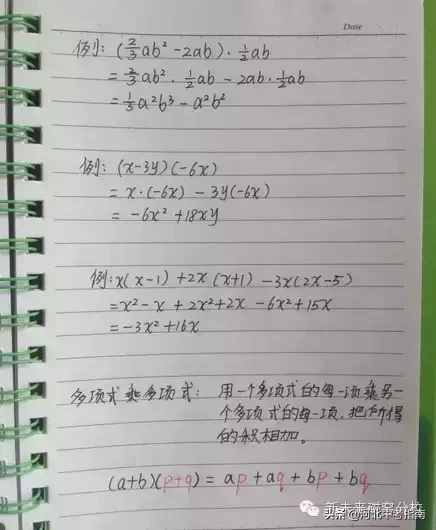 Date
例: (2/3 ab² - 2ab) · 1/2 ab
= 2/3 ab² · 1/2 ab - 2ab · 1/2 ab
= 1/3 a²b³ - a²b²
例: (x-3y)(-6x)
= x·(-6x) - 3y(-6x)
= -6x² + 18xy
例: x(x-1) + 2x(x+1) - 3x(2x-5)
= x² - x + 2x² + 2x - 6x² + 15x
= -3x² + 16x
多项式乘多项式: 用一个多项式的每一项乘另一
个多项式的每一项,把所得
的积相加。
(a+b)(p+q) = ap + aq + bp + bq